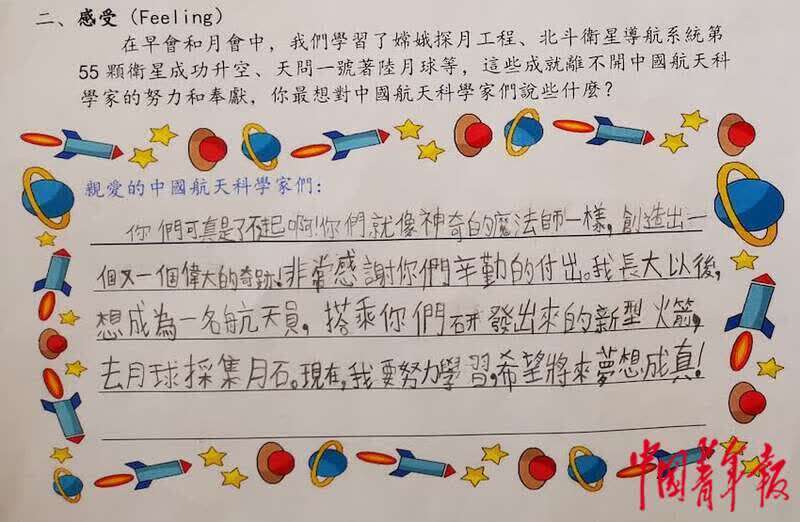 二、感受（Feeling）
在早會和月會中，我們學習了嫦娥探月工程、北斗衛星導航系統第
55 顆衛星成功升空、天問一號著陸月球等，這些成就離不開中國航天科
學家的努力和奉獻，你最想對中國航天科學家們說些什麼？
親愛的中國航天科學家們：
你們可真是了不起啊！你們就像神奇的魔法師一樣，創造出一
個又一個偉大的奇跡。非常感謝你們辛勤的付出。我長大以後，
想成為一名航天員，搭乘你們研發出來的新型火箭，
去月球採集月石。現在，我要努力學習，希望將來夢想成真！
中國青年報